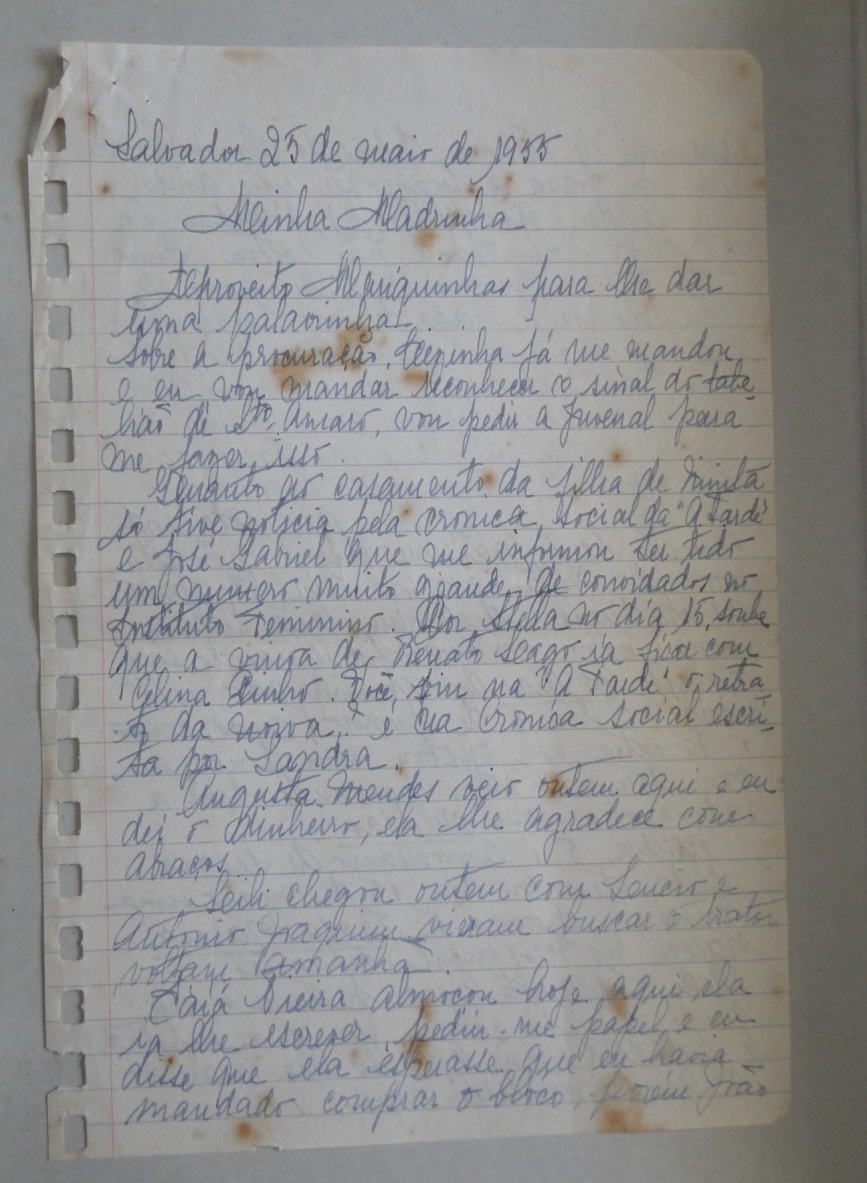 Salvador 25 de maio de 1955
Minha Madrinha
Aproveito Mariquinhas para lhe dar
uma palavrinha.
Sobre a procuração, já me mandou
e eu vou mandar reconhecer o sinal do tabe-
lião de Sto. Amaro, vou pedir a Juvenal para
me fazer isso.
Quanto ao casamento da filha de
só tive noticia pela cronica social da "A Tarde"
e José Gabriel que me informou ter tido
um numero muito grande de convidados no
Instituto Feminino. Por Stella no dia 15, soube
que a viuva de Renato ia ficar com
Celina . Você, viu na "A Tarde" o retra-
to da noiva, e na cronica social escri-
ta por Sandra.
Augusta Mendes veio ontem aqui e eu
dei o dinheiro, ela lhe agradece com
abraços.
chegou ontem com e
Antonio vieram buscar o trator
voltam amanhã.
Vieira almoçou hoje aqui, ela
ia lhe escrever, pediu-me papel e eu
disse que ela esperasse que eu havia
mandado comprar o bloco, porém João